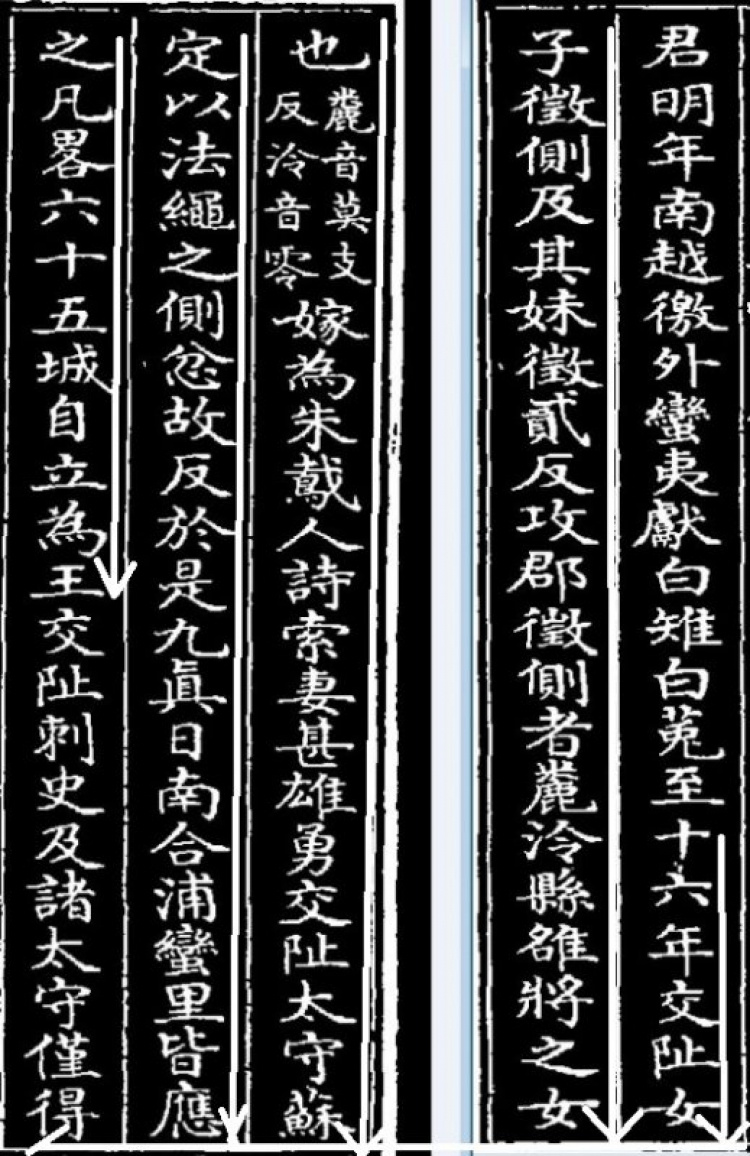 君明年南越徼外蠻夷獻白雉白菟至十六年交阯女
子徵側及其妹徵貳反攻郡徵側者麊泠縣雒將之女
也麊音莫支反泠音零嫁為朱䳒人詩索妻甚雄勇交阯太守蘇
定以法繩之側忿故反於是九眞日南合浦蠻里皆應
之凡畧六十五城自立為王交阯刺史及諸太守僅得